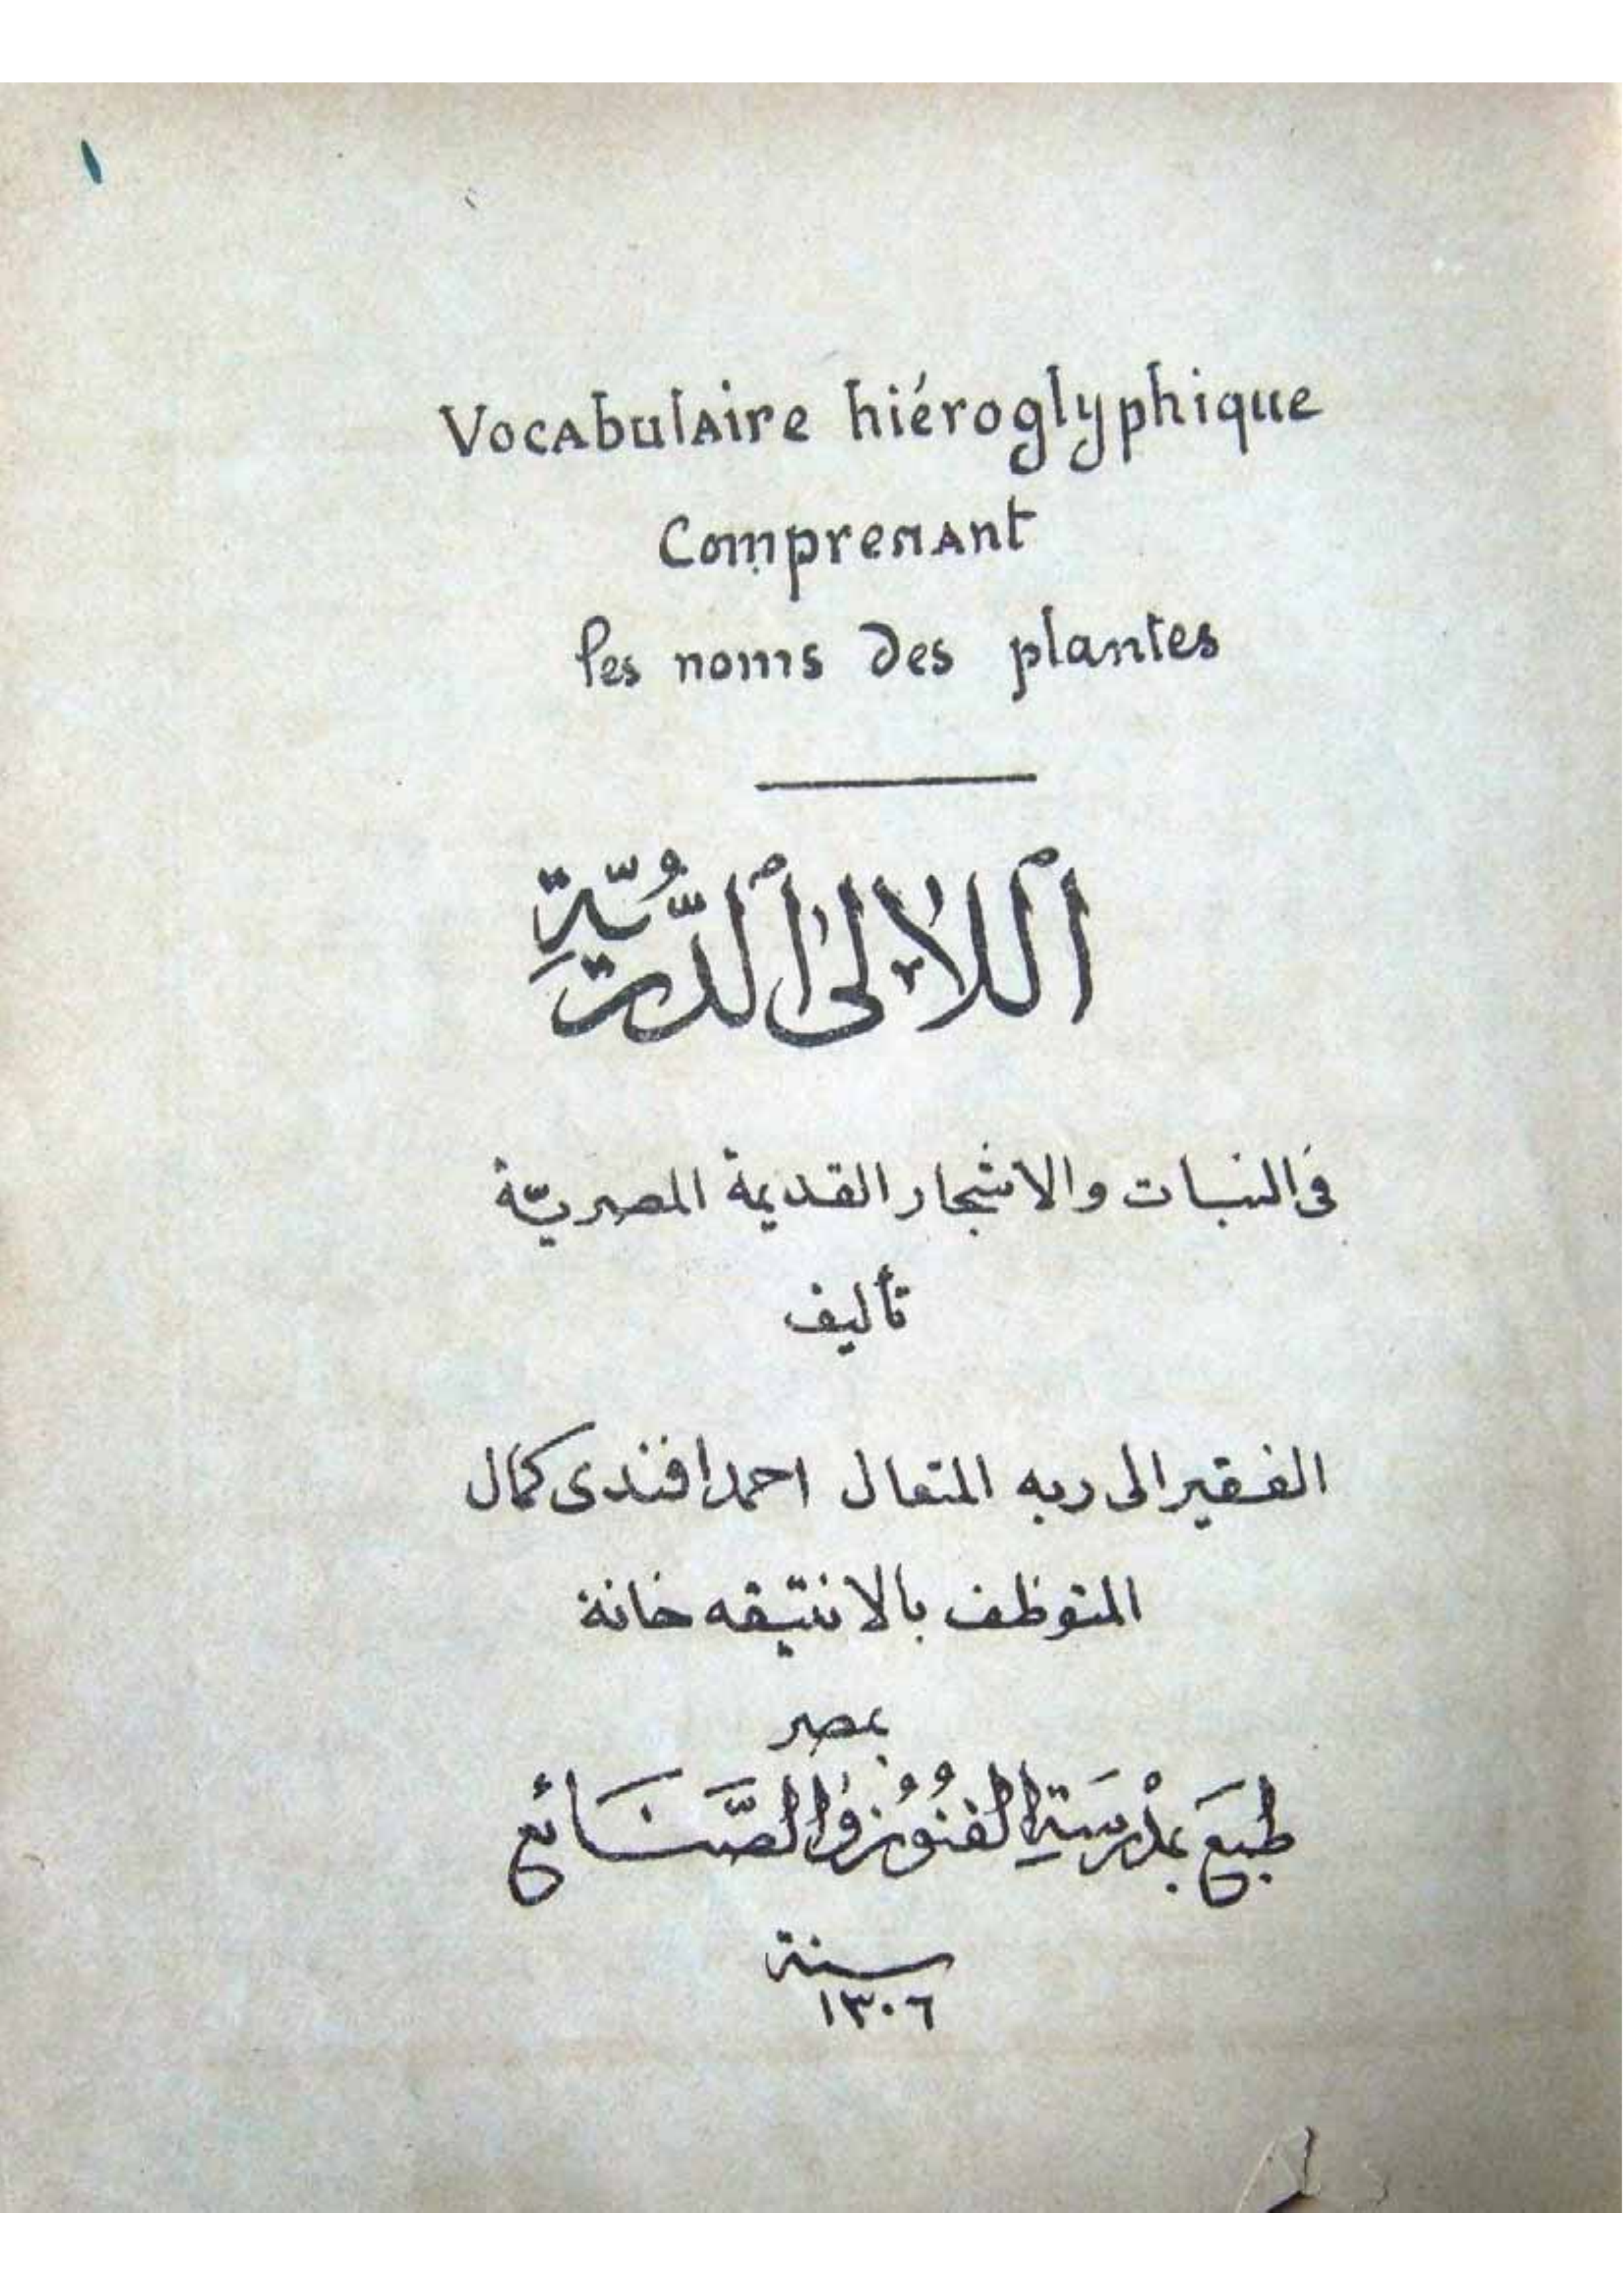 ١
Vocabulaire hiéroglyphique
Comprenant
les noms des plantes
اَللآلئ اَلدُّرِّيَّةِ
فى النبات والاشجار القديمة المصريّة
تأليف
الفقير الى ربه المتعال احمد افندى كمال
المتوظف بالانتيقه خانة
بمصر
طبعَ بمدْرسَةِ الفنُونِ والصَّنَائع
سنة
١٣٠٦